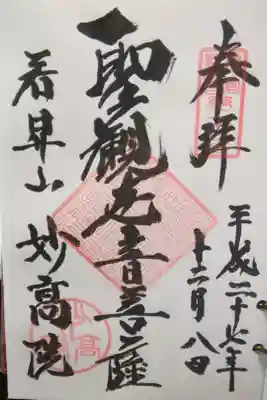 奉拝
平成二十七年
十二月八日
聖観世音菩薩
妙高院